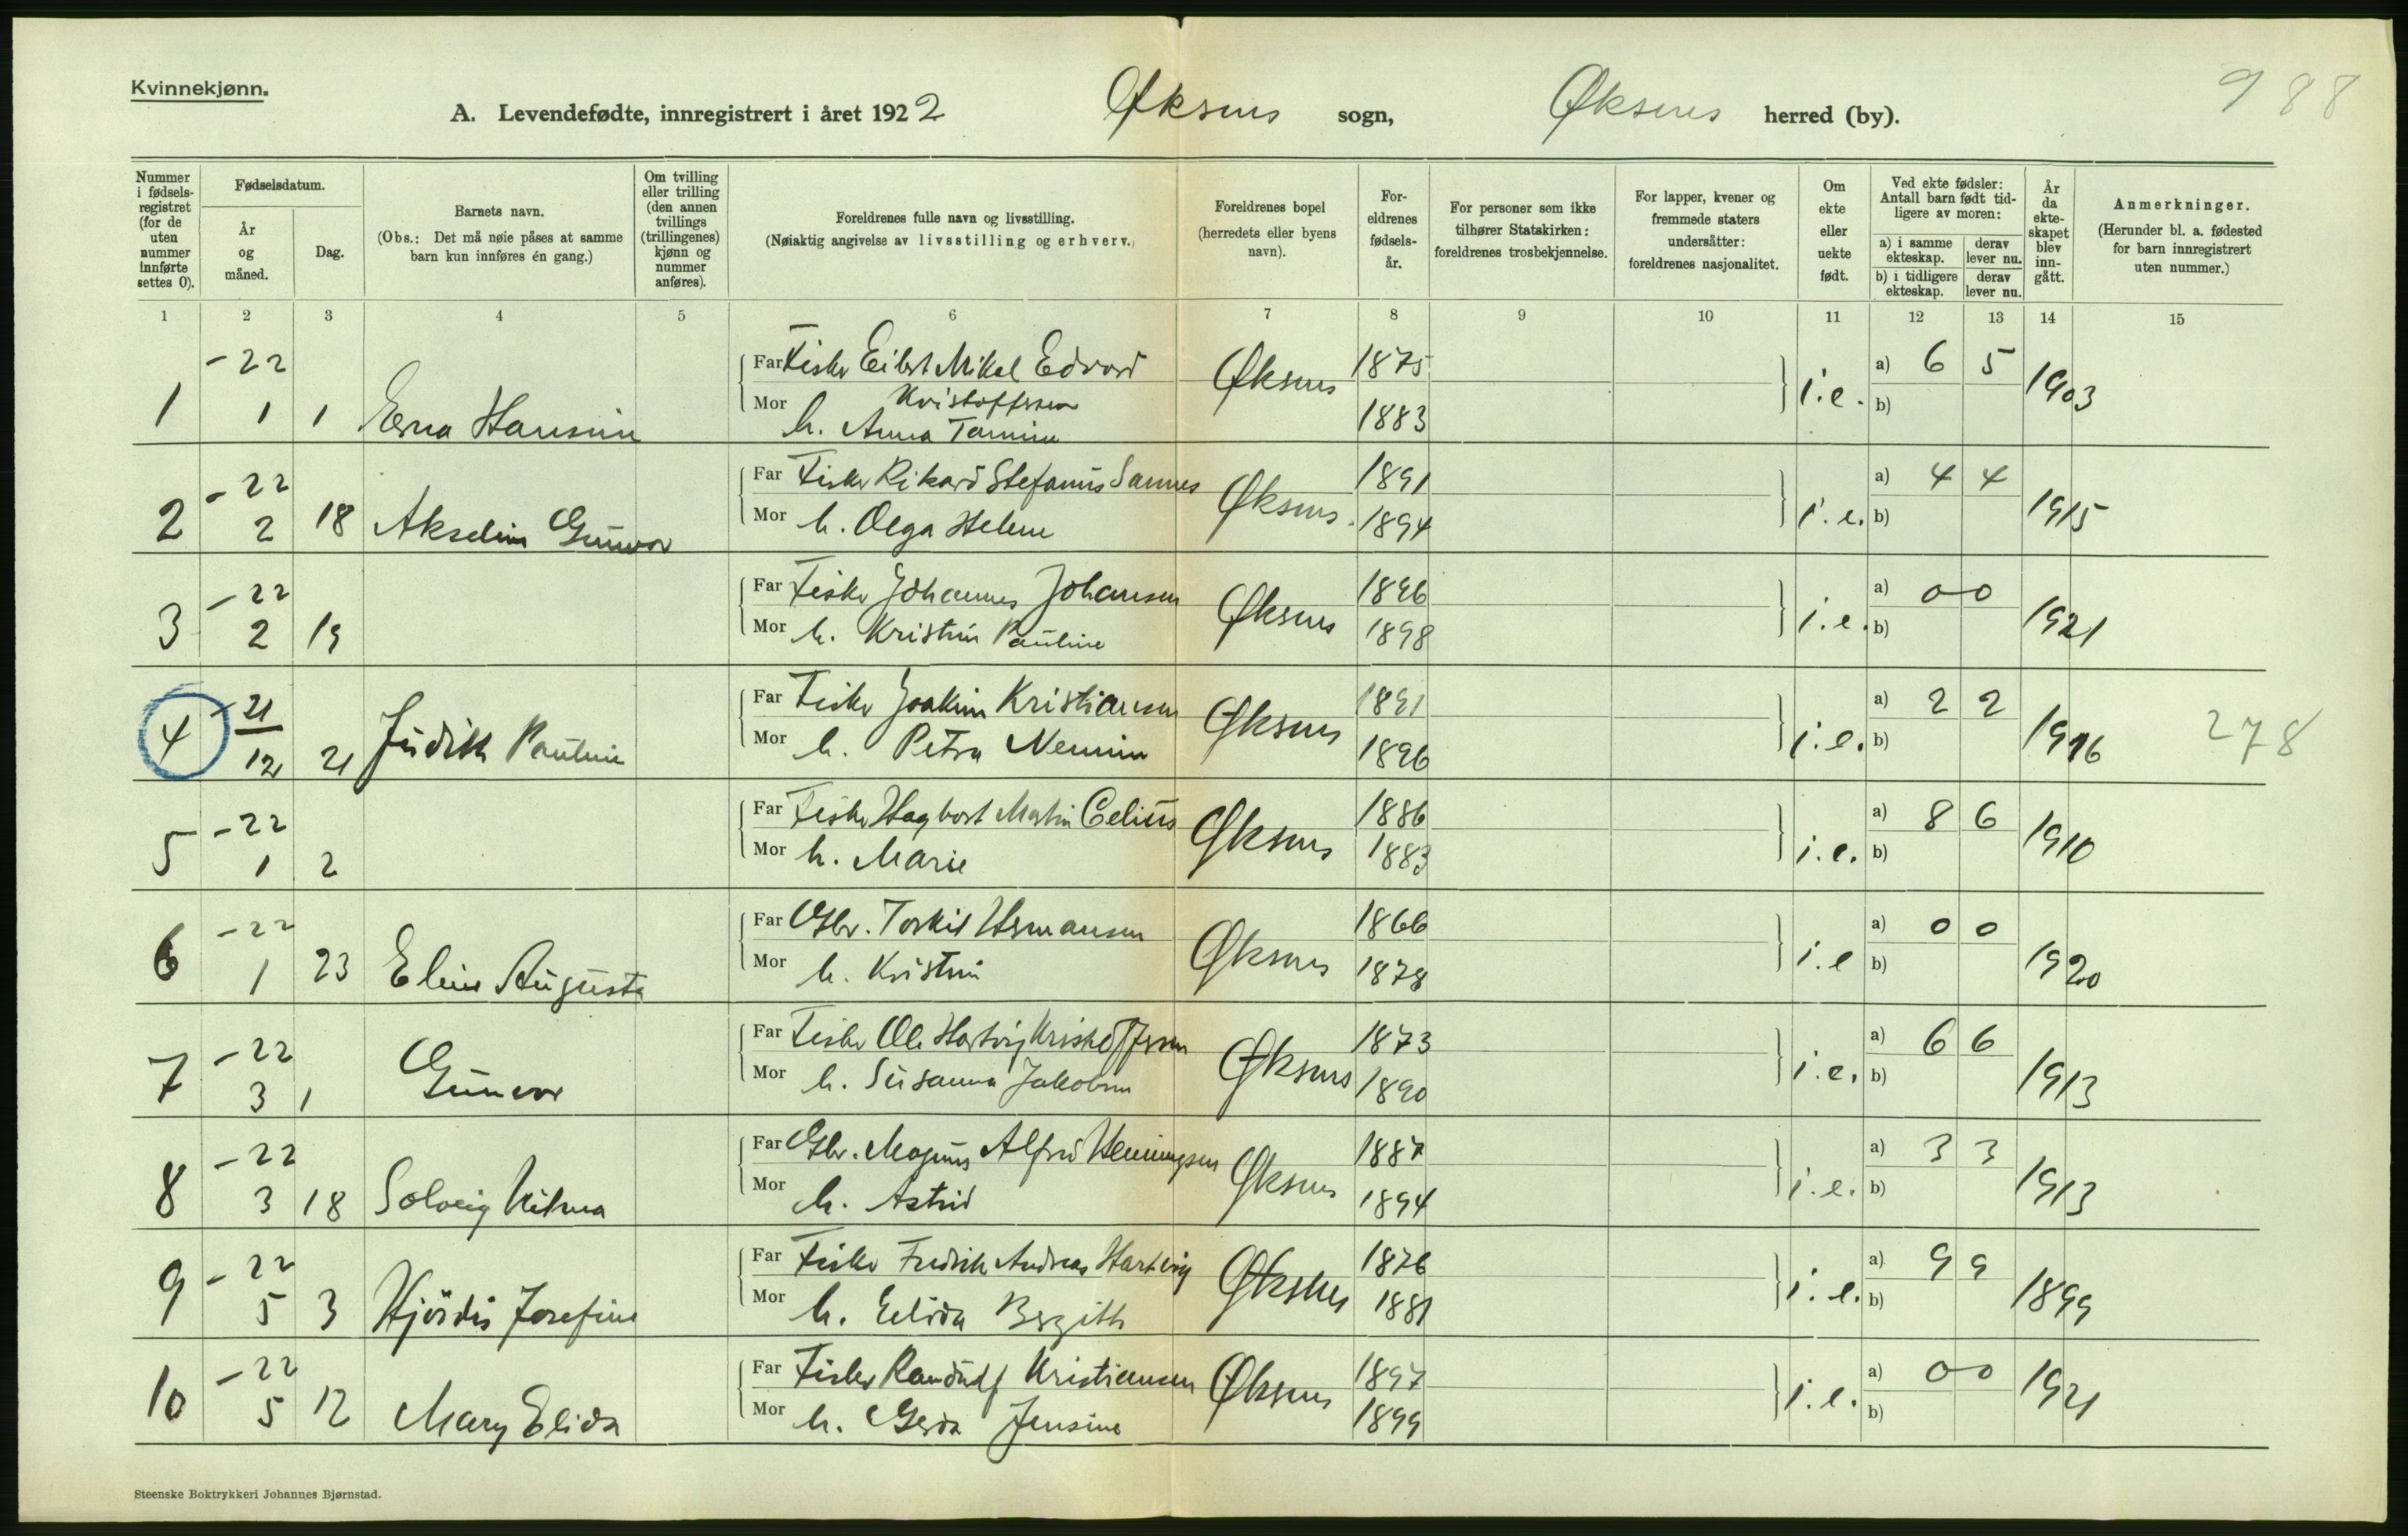 Kvinnekjønn.
A. Levendefødte, innregistrert i året 1922 Øksnes sogn, Øksnes herred (by). 988
Nummer i fødsels- registret (for de uten nummer innførte settes 0).
Fødselsdatum.
År og måned.
Dag.
Barnets navn.
(Obs.: Det må nøie påses at samme barn kun innføres én gang.)
Om tvilling eller trilling (den annen tvillings (trillingenes) kjønn og nummer anføres).
Foreldrenes fulle navn og livsstilling.
(Nøiaktig angivelse av livsstilling og erhverv.)
Foreldrenes bopel (herredets eller byens navn).
For- eldrenes fødsels- år.
For personer som ikke tilhører Statskirken: foreldrenes trosbekjennelse.
For lapper, kvener og fremmede staters undersåtter: foreldrenes nasjonalitet.
Om ekte eller uekte født.
Ved ekte fødsler: Antall barn født tid- ligere av moren:
a) i samme ekteskap. derav lever nu.
b) i tidligere ekteskap. derav lever nu.
År da ekte- skapet blev inn- gått.
Anmerkninger.
(Herunder bl. a. fødested for barn innregistrert uten nummer.)
1 2 3 4 5 6 7 8 9 10 11 12 13 14 15
-22 Far Fisker Eilert Mikal Edvard Øksnes 1875 a) 6 5 1903
Kristoffersen
1 1 1 Erna Hansine Mor h. Anna Tomine 1883 i.e. b)
-22 Far Fisker Rikard Stefanus Sannes Øksnes 1891 a) 4 4 1915
2 2 18 Akseline Gunvor Mor h. Olga Helene 1894 i.e. b)
-22 Far Fisker Johannes Johansen Øksnes 1896 a) 0 0 1921
3 2 19 Mor h. Kristine Pauline 1898 i.e. b)
-21 Far Fisker Joakim Kristiansen Øksnes 1891 a) 2 2 1916 278
4 12 21 Judith Pauline Mor h. Petra 1896 i.e. b)
-22 Far Fisker Hagbart Martin Celius Øksnes 1886 a) 8 6 1910
5 1 2 Mor h. Marie 1883 i.e. b)
-22 Far Gbr. Torkil Hermansen Øksnes 1866 a) 0 0 1920
6 1 23 Eline Augusta Mor h. Kristine 1878 i.e b)
-22 Far Fisker Ole Hartvig Kristoffersen Øksnes 1873 a) 6 6 1913
7 3 1 Gunvor Mor h. Susanna Jakobine 1890 i.e. b)
-22 Far Gbr. Magnus Alfred Henningsen Øksnes 1887 a) 3 3 1913
8 3 18 Solveig Hilma Mor h. Astrid 1894 i.e. b)
-22 Far Fisker Fredrik Andreas Hartvig Øksnes 1876 a) 9 9 1899
9 5 3 Hjördis Josefine Mor h. Elida Bergith 1881 i.e. b)
-22 Far Fisker Randulf Kristiansen Øksnes 1897 a) 0 0 1921
10 5 12 Mary Elida Mor h. Gerda Jensine 1899 i.e. b)
Steenske Boktrykkeri Johannes Bjørnstad.